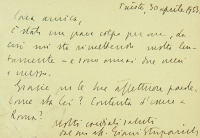 Trieste, 30 aprile 1953
Cara amica,
è stato un grave colpo per me, da
cui mi sto rimettendo molto len-
tamente e sono ormai due mesi
e mezzo.
Grazie per le Sue affettuose parole.
Come sta Lei? Contenta d'essere a
Roma?
Molti cordiali saluti
dal suo aff. Giani Stuparich